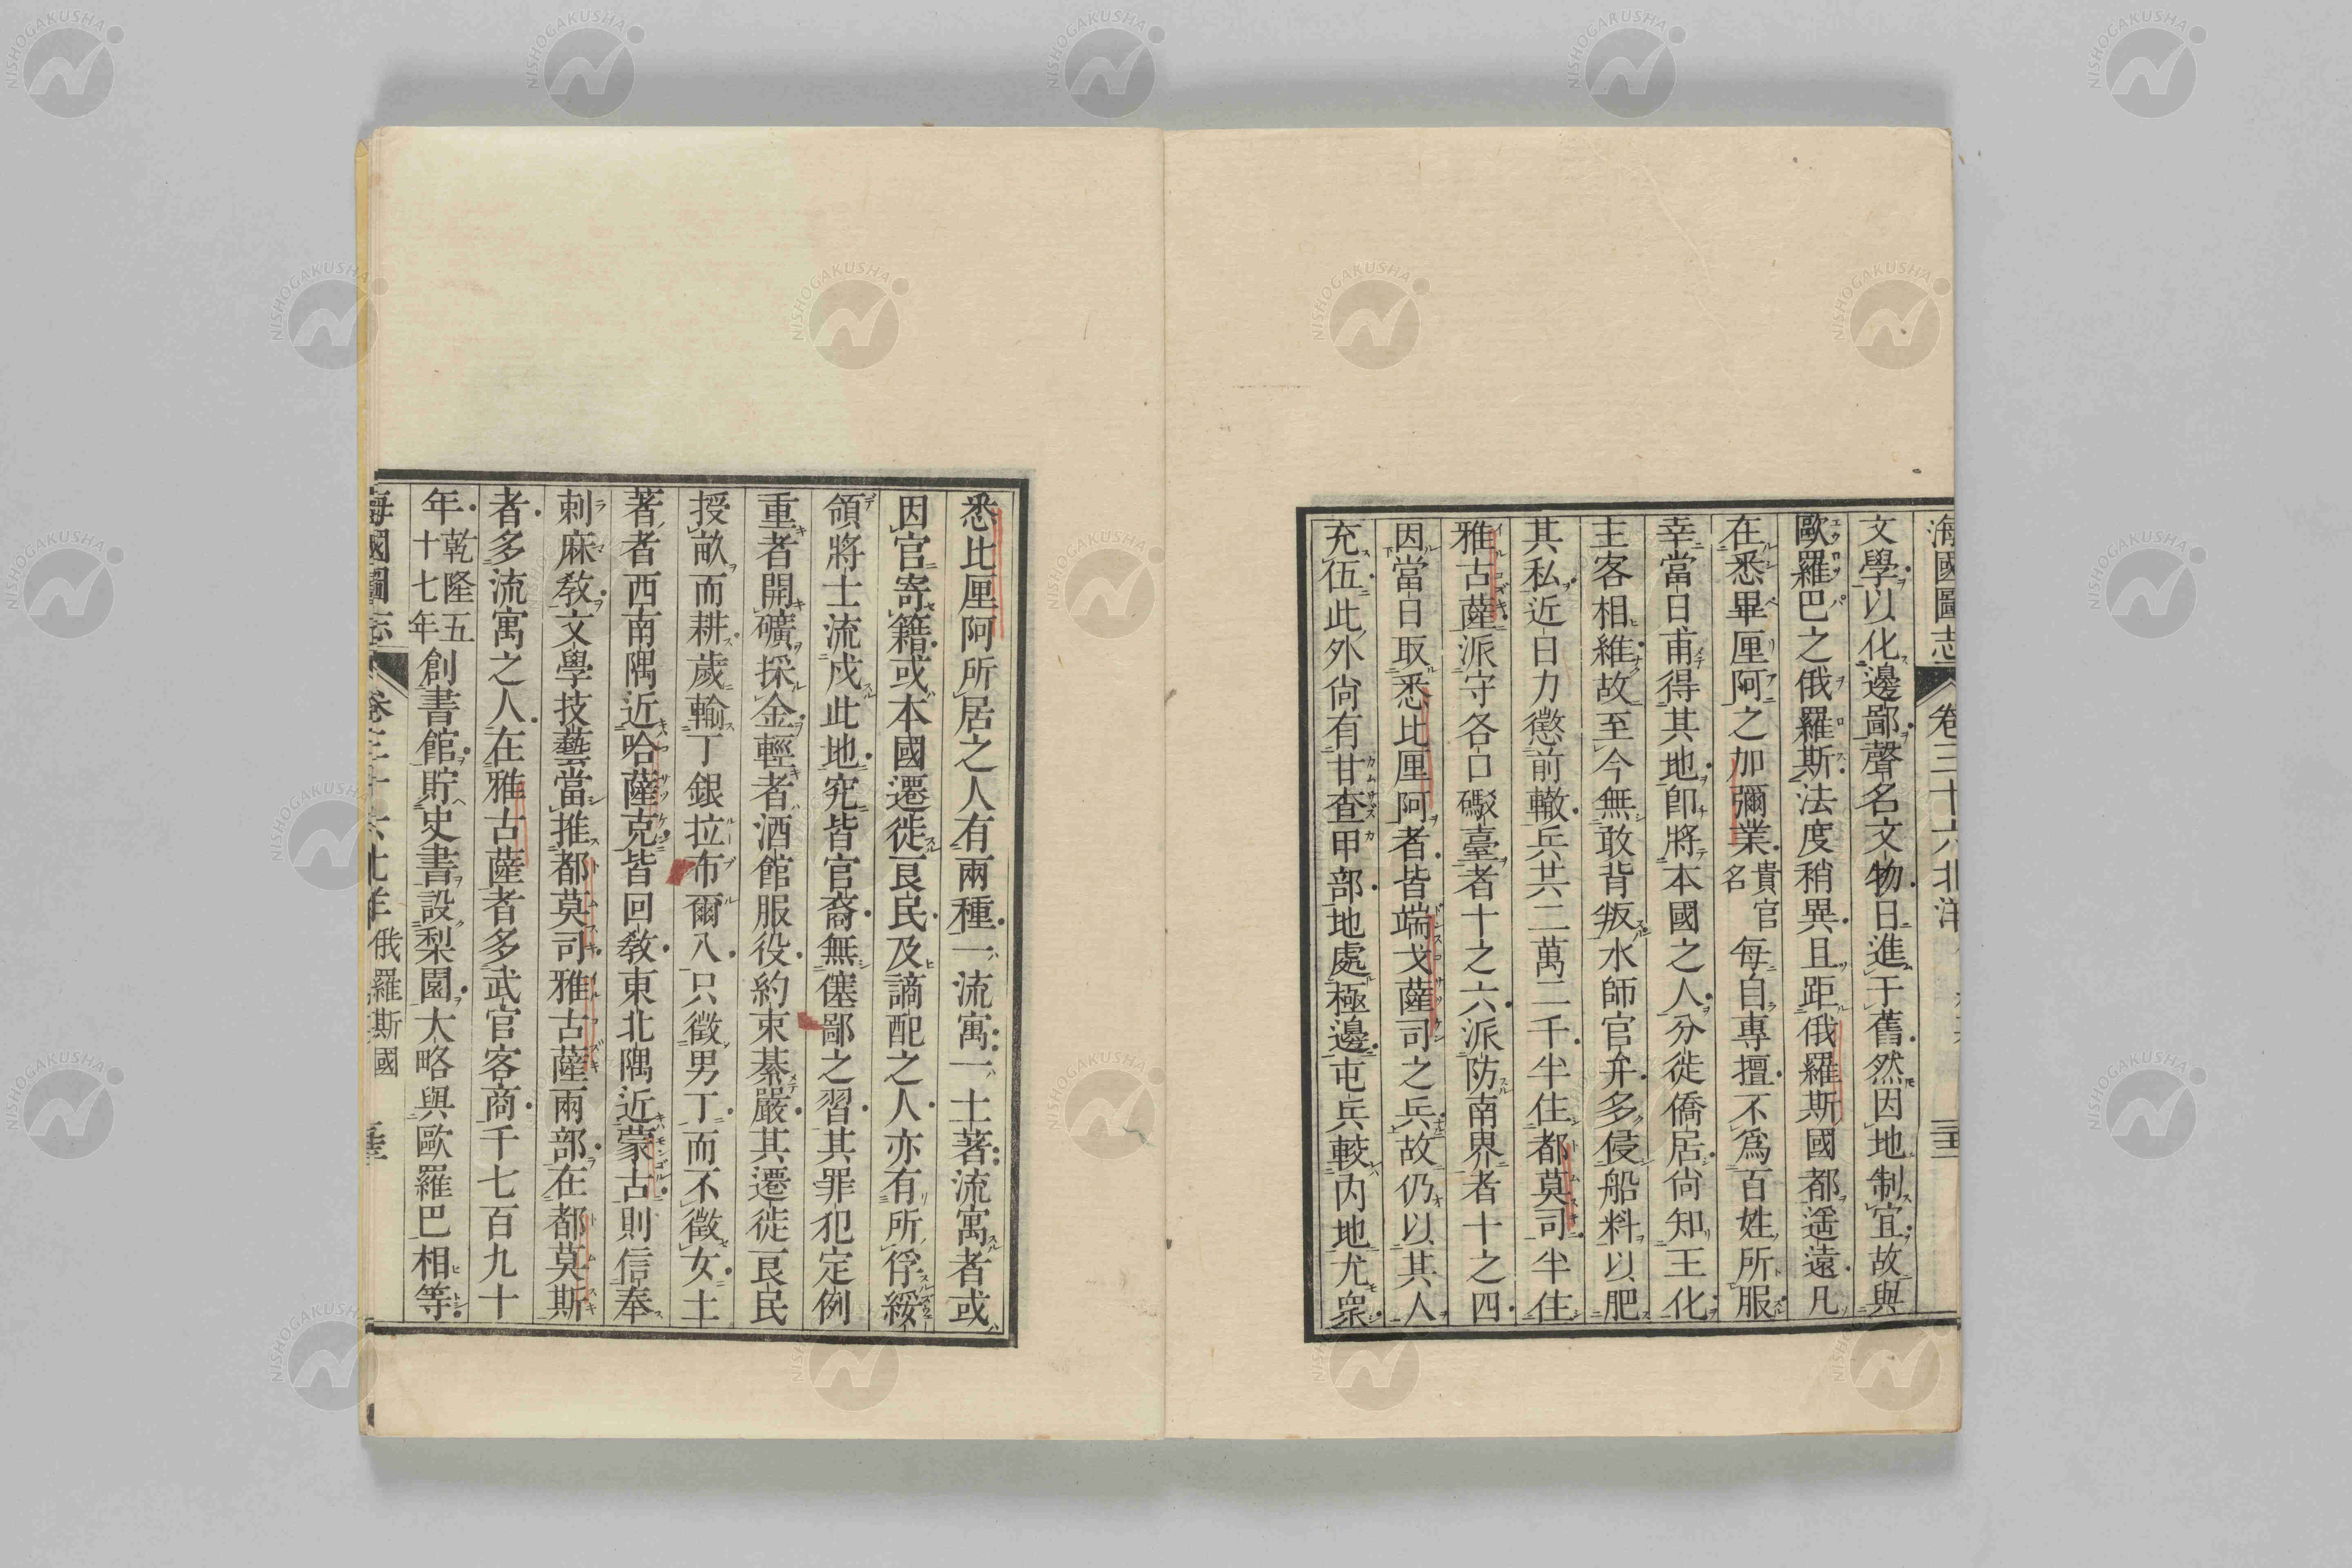 海國圖志 卷三十六北洋
文學以化邊鄙聲名文物日進于舊然因地制宜故與
歐羅巴之俄羅斯法度稍異且距俄羅斯國都遥遠凡
在悉畢厘阿之加彌業貴官名每自專擅不爲百姓所服
幸當日甫得其地卽將本國之人分徙僑居尙知王化
主客相維故至今無敢背叛水師官弁多侵船料以肥
其私近日力懲前轍兵共二萬二千半住都莫司半住
雅古薩派守各口礟臺者十之六派防南界者十之四
因當日取悉比厘阿者皆端戈薩司之兵故仍以其人
充伍此外尙有甘查甲部地處極邊屯兵較内地尤衆
悉比厘阿所居之人有兩種一流寓一土著流寓者或
因官寄籍或本國遷徙良民及謫配之人亦有所俘綏
領將士流戍此地究皆官裔無僿鄙之習其罪犯定例
重者開礦採金輕者酒館服役約束綦嚴其遷徙良民
授畝而耕歲輸丁銀拉布爾八只徵男丁而不徵女土
著者西南隅近哈薩克皆回敎東北隅近蒙古則信奉
剌麻敎文學技藝當推都莫司雅古薩兩部在都莫斯
者多流寓之人在雅古薩者多武官客商千七百九十
年乾隆五十七年創書館貯史書設梨園大略與歐羅巴相等
海國圖志 卷三十六北洋 俄羅斯國
NISHOGAKUSHA